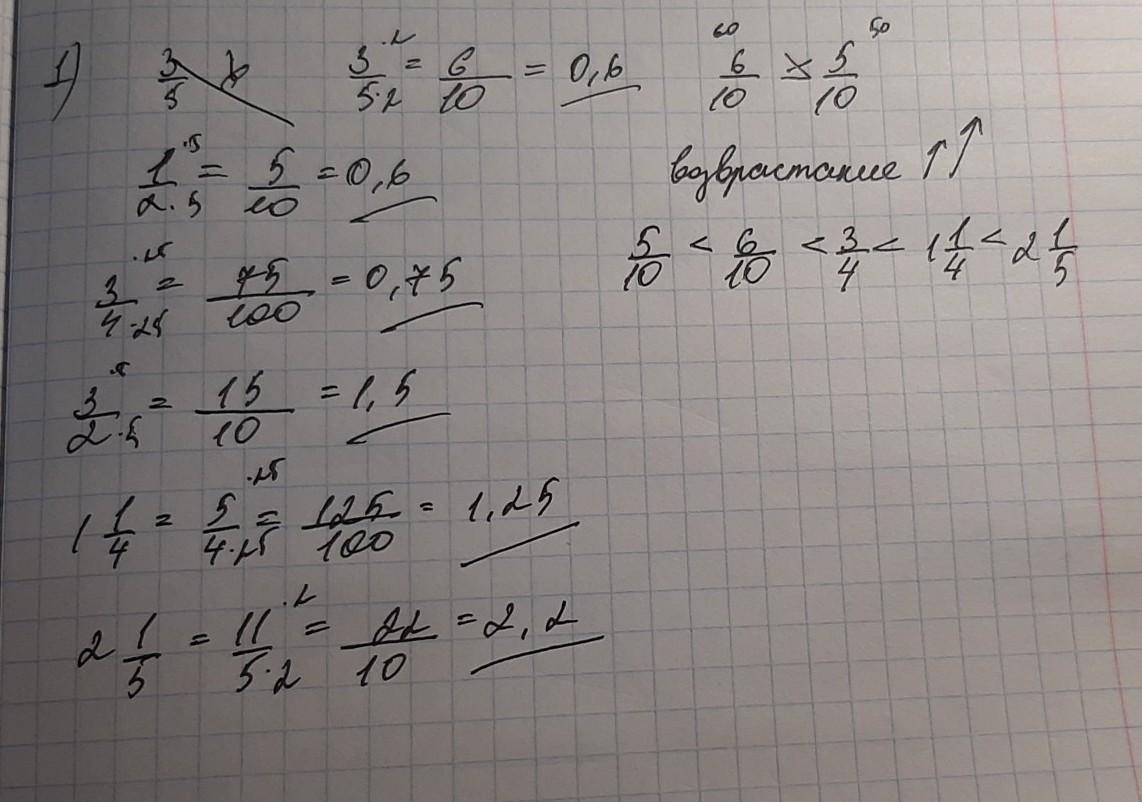 1) 3/5 3·2/5·2 = 6/10 = 0,6 60 6/10 × 5/10 50
1·5/2·5 = 5/10 = 0,6 возврастание ↑↑
3·25/4·25 = 75/100 = 0,75 5/10 < 6/10 < 3/4 < 1 1/4 < 2 1/5
3·5/2·5 = 15/10 = 1,5
1 1/4 = 5·25/4·25 = 125/100 = 1,25
2 1/5 = 11·2/5·2 = 22/10 = 2,2